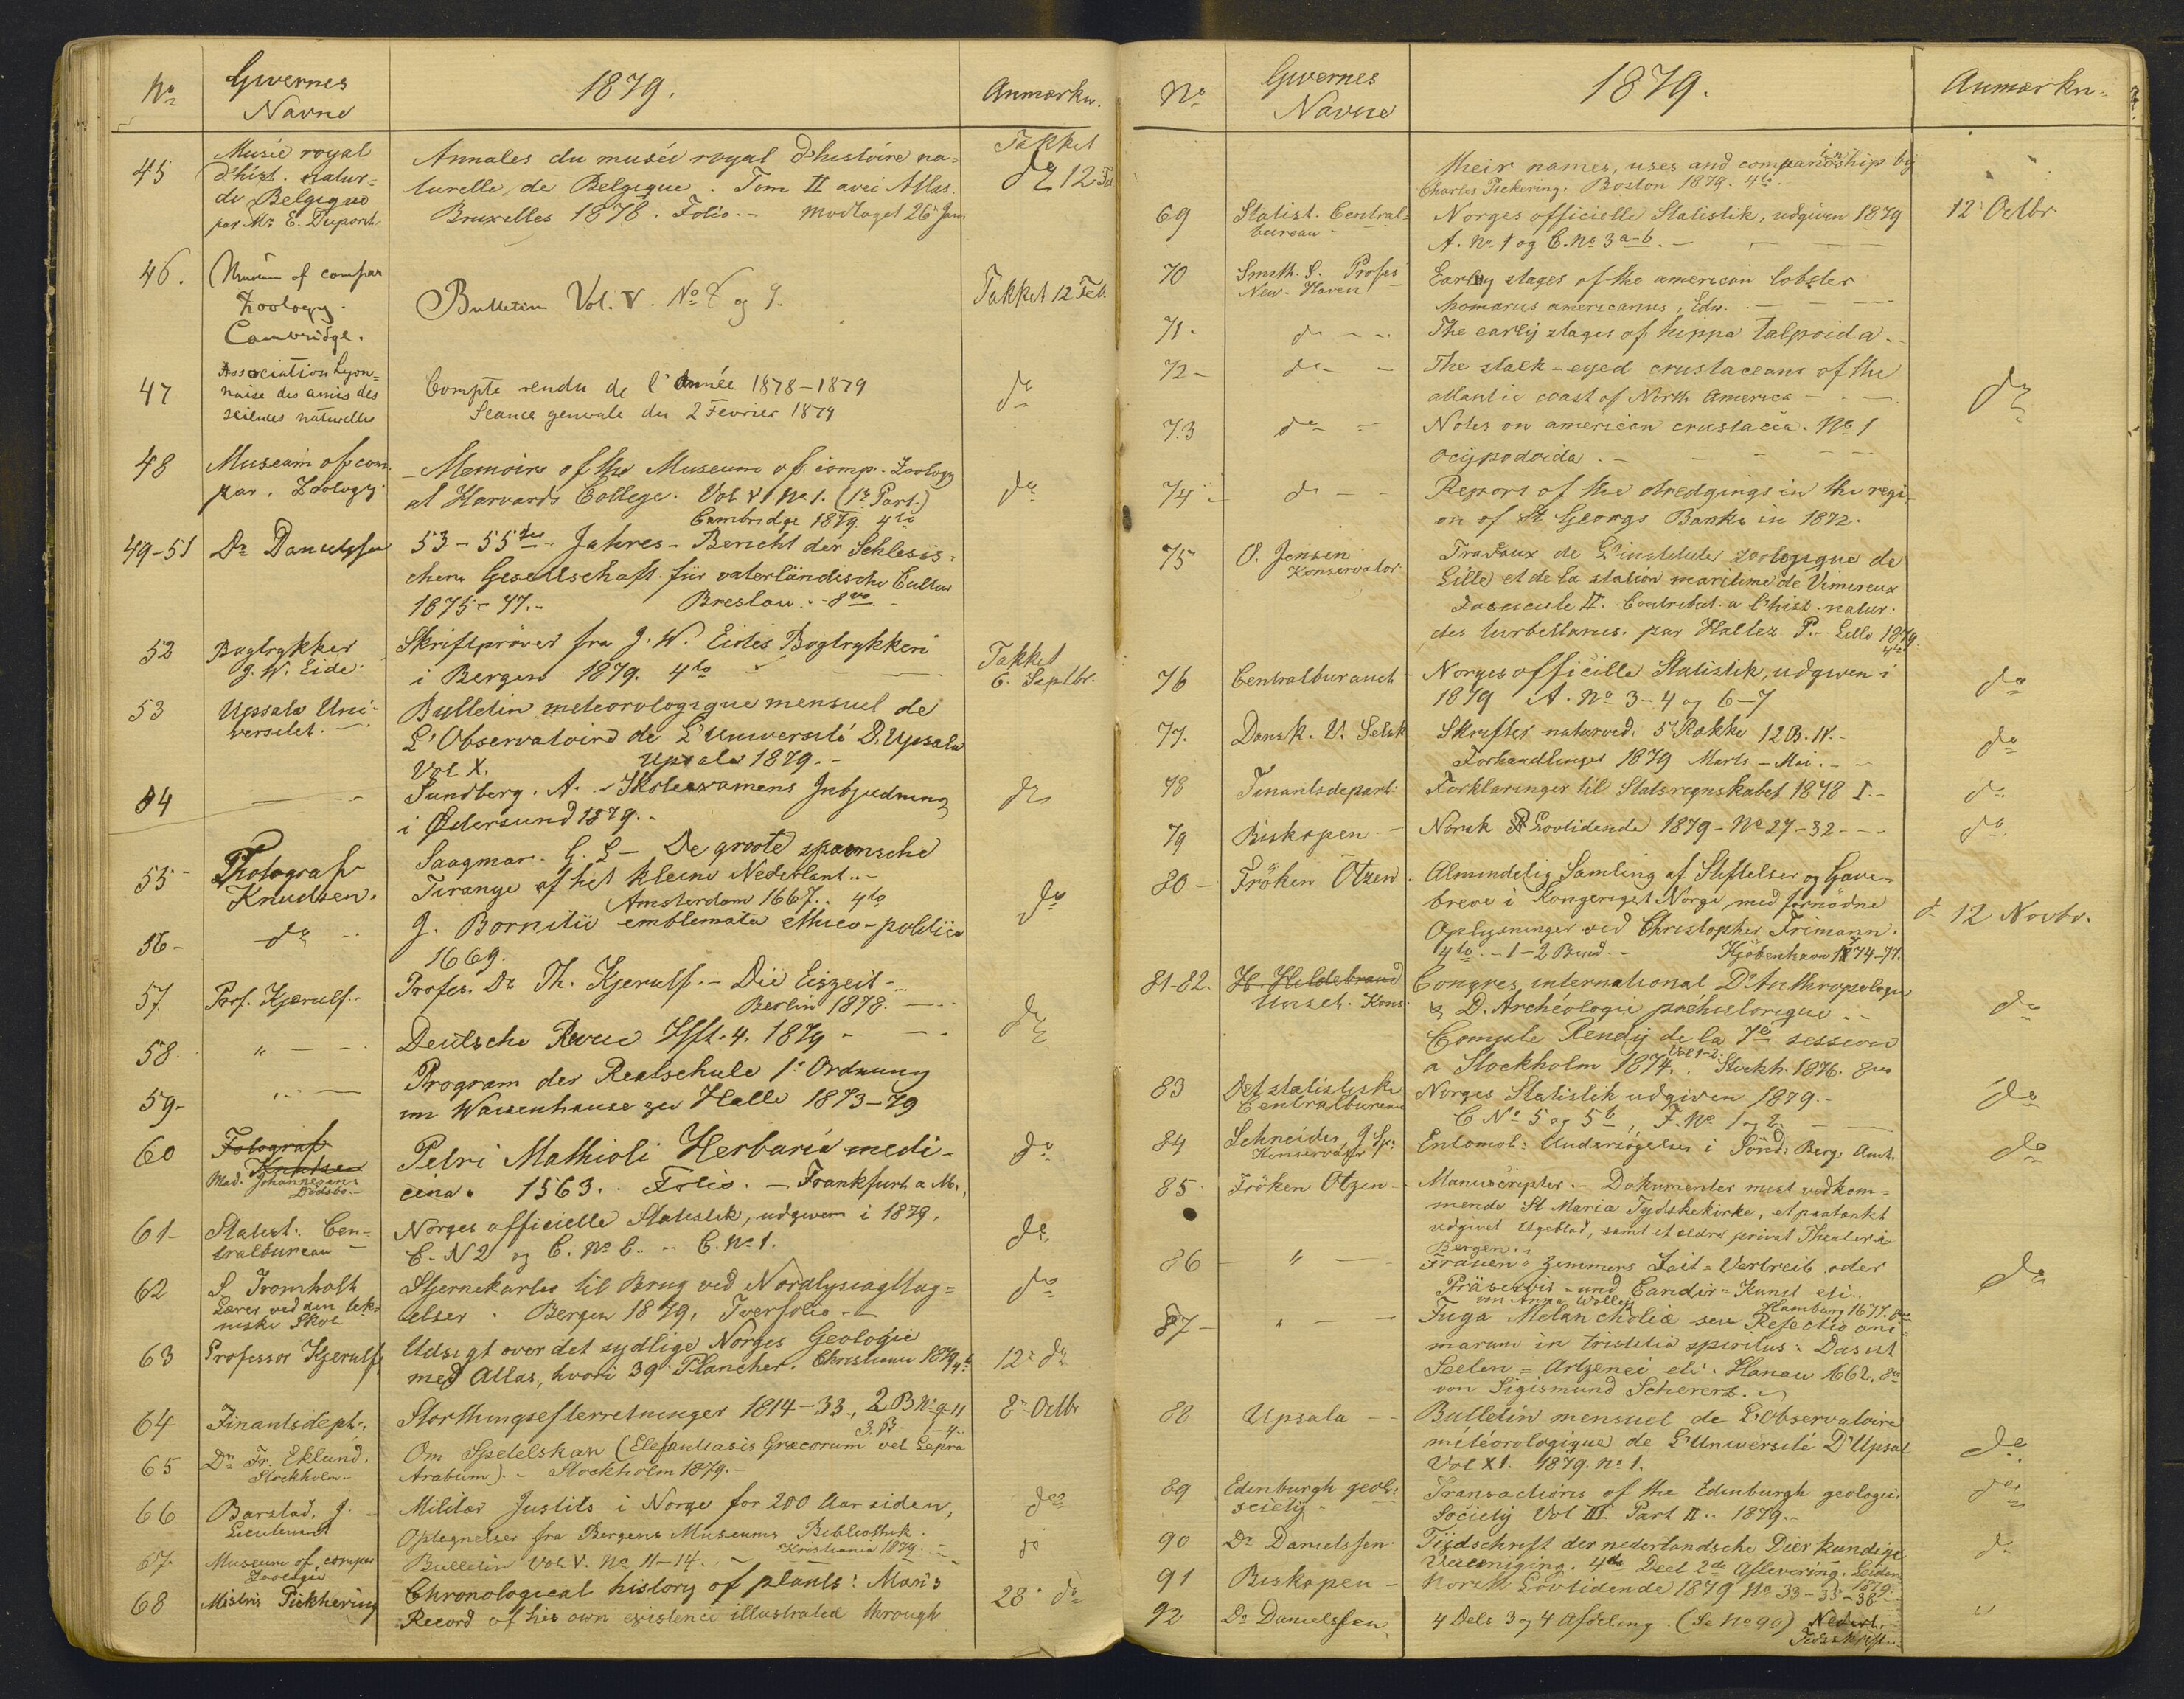 No
Givernes
Navne
1879.
Anmærkn.
45
Musée royal
d'hist. natur-
de Belgique
par Mr. E. Dupont
Annales du musée royal d'histoire na-
turelle de Belgique. Tom II avec Atlas.
Bruxelles 1878. Folio. - Modtaget 26 Jan.
Takket
do 12 Feb
46.
Museum of compar
Zoology.
Cambridge.
Bulletin Vol. V. No 8 og 9.
Takket 12 Feb.
47
Association Lyon-
naise des amis des
sciences naturelles
Compte rendu de l'Année 1878-1879
Seance generale du 2 Fevrier 1879
do
48
Museum of com-
par. Zoology.
Memoirs of the Museum of comp. Zoology
at Harvards College. Vol VI No 1. (1st Part.)
Cambridge 1879. 4to
do
49-51
Dr Danielssen
53-55tes Jahres-Bericht der Schlesis-
chen Gesellschaft für vaterländische Cultur
1875-77.- Breslau.- 8vo
52
Bogtrykker
J. W. Eide.
Skriftprøver fra J. W. Eides Bogtrykkeri
i Bergen 1879. 4to
Takket
6. Septbr.
53
Upsala Uni-
versitet.
Bulletin meteorologique mensuel de
L'Observatoire de L'Université D. Upsala
Vol X. Upsala 1879.-
54
Sundberg. A.- Skolexamens Inbjudning
i Østersund 1879.-
do
55-
Photograf
Knudsen.
Saagman. G. L- De groote spaansche
Tirange of het kleine Nederlant.-
Amsterdam 1667.. 4to
do
56-
do
J. Bornitii emblemata ethico-politica
1669.
57.
Prof. Kjerulf.
Profes. Dr Th. Kjerulf.- Die Eiszeit-
Berlin 1878.
do
58.
"
Deutsche Revue Hft. 4. 1879-
59-
"
Program der Realschule 1. Ordnung
im Waisenhause zu Halle 1873-79
60
Fotograf
Knudsen
Mad. Johannesens
Dödsbo.-
Petri Mathioli Herbaria medi-
cina. 1563. Folio.- Frankfurt a M.
do
61-
Statist. Cen-
tralbureau
Norges officielle Statistik, udgiven i 1879.
C. N 2 og C. No C. C. No 1.
do
62
S. Tromholt
Lærer ved den tek-
niske Skole
Stjernekarter til Brug ved Nordlysiagttag-
elser. Bergen 1879. Tverfolio.-
do
63
Professor Kjerulf
Udsigt over det sydlige Norges Geologie
med Atlas, hvori 39 Plancher. Christiania 1879 4to
12. do
64
Finantsdept.
Storthingsefterretninger 1814-33., 2 B No 9-11
3. B- 1-4..
8. Octbr
65
Dr. Fr. Eklund.
Stockholm-
Om Spetelskan (Elefantiasis Græcorum vel Lepra
Arabum).- Stockholm 1879.-
66
Barstad, J.
Lieutenant
Militær Justits i Norge for 200 Aar siden,
Optegnelser fra Bergens Museums Bibliothek.
Kristiania 1879.
do
67.
Museum of compar
Zoologie
Bulletin Vol. V. No 11-14.
do
68
Mistris Pickhering
Chronological history of plants: Man's
Record of his own existence illustrated through
28. do
No
Givernes
Navne
1879.
Anmærkn.
their names, uses and companionship by
Charles Pickering. Boston 1879. 4to
69
Statist. Central-
bureau
Norges officielle Statistik, udgiven 1879
A. No 1 og C. No 3 a-b.
12 Octbr.
70
Smith. S. Profes
New-Haven
Early stages of the american lobster
homarus americanus, Edw.
71-
do
The early stages of hippa talpoida-
72-
do
The stalk-eyed crustaceans of the
atlantic coast of North America
do
73
do
Notes on american crustacea. No 1
ocypodoida.
74-
do
Report of the dredgings in the regi-
on of St Georgs Banks in 1872.
75
O. Jensen
Konservator.
Travaux de L'institute zoologique de
Lille et de la station maritime de Vimereux
Fascicule II. Contribut. a l'hist. natur.
des turbellaries. par Hallez P.- Lille 1879.
4to
76
Centralbureauet
Norges officielle Statistik, udgiven i
1879 A. No 3-4 og 6-7
do
77.
Dansk. V. Selsk
Skrifter naturvid. 5 Række 12 B. IV.-
Forhandlinger 1879 Marts-Mai.-
do
78
Finantsdepart.
Forklaringer til Statsregnskabet 1878 I.-
do
79
Biskopen-
Norsk Lovtidende 1879-No 27-32-
do
80-
Fröken Otzen.
Almindelig Samling af Stiftelser og Gave-
breve i Kongeriget Norge, med fornödne
Oplysninger ved Christopher Frimann.
4to.-1-2 Bind.- Kjöbenhavn 1774-77.
d 12 Novbr.
81-82.
H. Hildebrand
Unset. Kons.
Congres international D'Anthropologie
& D. Archéologie préhistorique.
Compte Rendy de la 7e session
a Stockholm 1874. Vol 1-2. Stockh. 1876. 8vo
do
83
Det statistiske
Centralbureau
Norges Statistik udgiven 1879.-
C No 5 og 5b, F. No 1 og 2
do
84
Schneider, J. Sp.
Konservator
Entomol. Undersögelser i Sönd. Berg. Amt.
do
85
Fröken Otzen-
Manuscripter.- Dokumenter mest vedkom-
mende St Maria Tydskekirke, et paatænkt
udgivet Ugeblad, samt et ældre privat Theater i
Bergen.-
86
"
Frauen-Zimmers Zeit-Vertreib oder
Präservir- und Candir-Kunst etc.
von Anna Wolley Hamburg 1677. 8vo
do
87-
"
Fuga Melancholiæ seu Refectio ani-
marum in tristitia spiritus: Das ist
Seelen-Artzenei etc. Hanau 1662. 8vo
von Sigismund Scherertz.
88
Upsala-
Bulletin mensuel de L'Observatoire
météorologique de L'Université D'Upsal
Vol XI. 1879. No 1.
do
89
Edinburgh geol.
sciety.
Transactions of the Edinburgh geologic.
Society Vol III Part II.. 1879.-
do
90
Dr Danielssen.
Tijdschrift der nederlandsche Dierkundige
Vereeniging. 4de Deel 2de Aflevering. Leiden
1879.
do
91
Biskopen-
Norsk Lovtidende 1879 No 33-35-38
92
Dr Danielssen
4 Dels 3 og 4 Afdeling. (Se No 90) Nederl.
Tidsskrift.
"